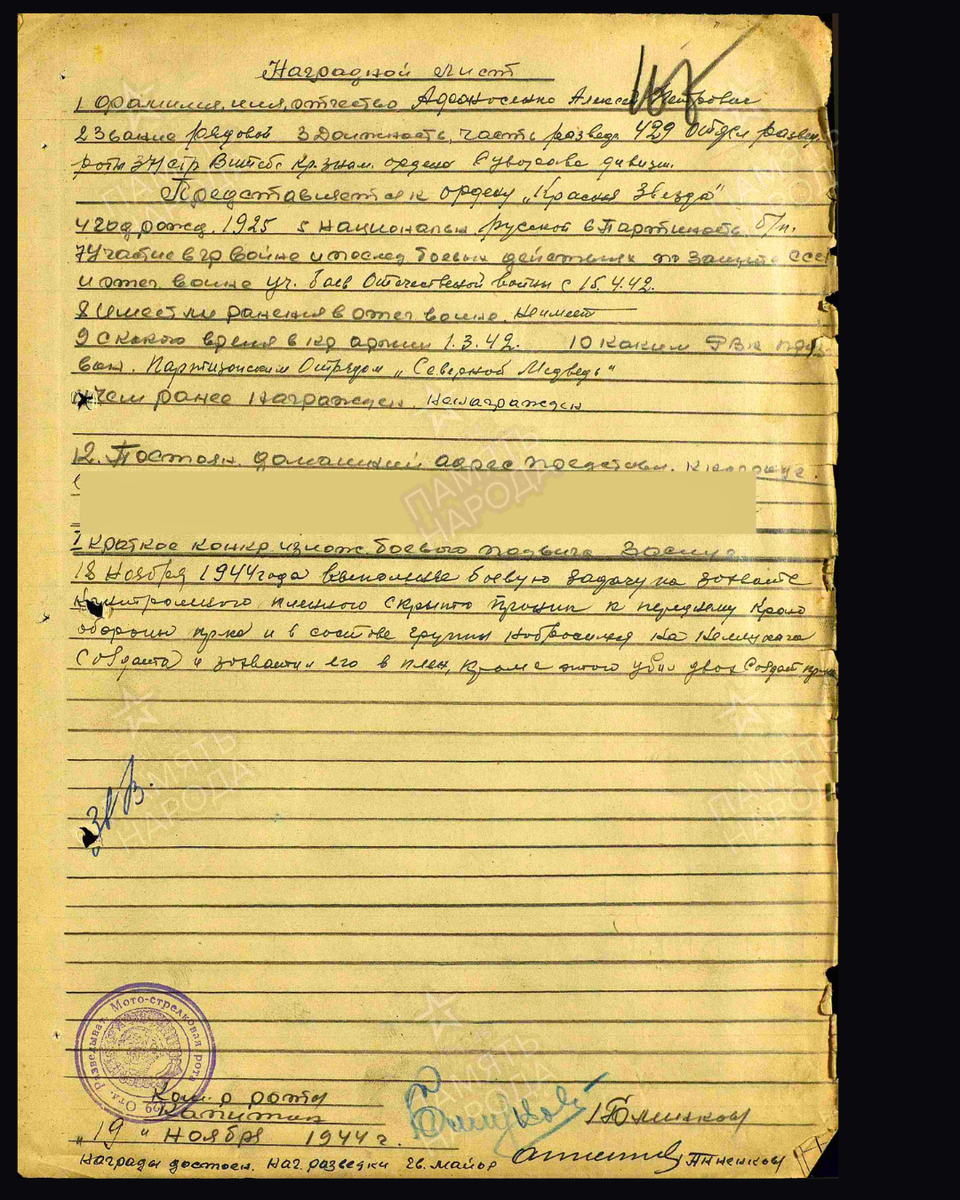 Наградной лист
1 Фамилия, имя, отчество Афоносенко Алексей Петрович
2 Звание рядовой 3 Должность, часть разведч. 429 Отдел развед.
роты стр Витебс Кр.знам. ордена Суворова дивизи.
Представляется к ордену „Красная Звезда"
4 год рожд. 1925 5 Национальн русской 6 Партийность б/п.
7 Участие в гр войне и послед боевых действиях по защите СССР
и отеч войне уч. боев Отечественной войны с 15.4.42.
8 Имеет ли ранения в отеч войне. Неимеет
9 С какого время в кр армии 1.3.42. 10 Каким РВК приз-
ван. Партизонским Отрядом „Северной Медведь"
Чем ранее награжден. ненагражден
12. Постоян. домашний адрес представл. к награде.
I краткое конкр излож. боевого подвига
18 Ноября 1944 года выполняя боевую задачу по зохвате
контрольного пленного скрытно проник к переднему краю
обороны пр-ка и в составе группы набросился на немецкага
солдата и зохватил его в плен, кроме этого убил двох солдат пр-ка
Зв В.
Отд. Разведыват. Мото-стрелковая рота
Ком-р роты
Капитан
/Блинков/
„19" Ноября 1944 г.
Награды достоен. Нач. разведки гв. майор